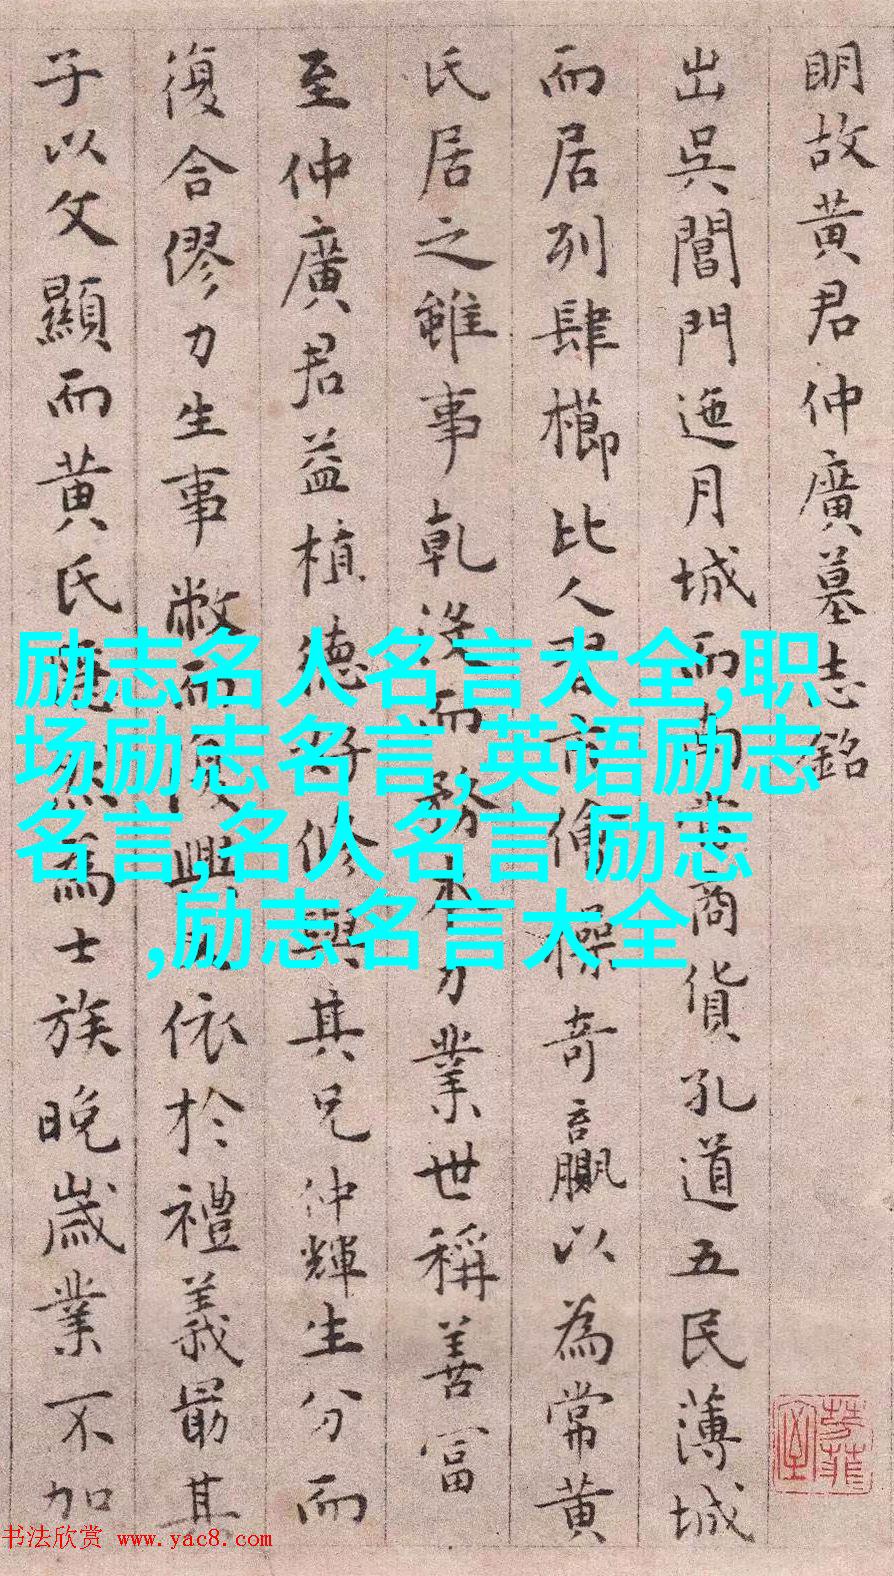 明故黄君仲廣墓志銘
出吳閶門迤月城而南 商貨孔道五民薄城
而居列肆櫛比人 奇贏以為常黄
氏居之雖事乾没而務本力業世稱善富
至仲廣君益植德好修與其兄仲輝生分而
復合僇力生事敝而復興 依於禮義最其
子以文顯而黄氏 為士族晚歲業不加
励志名人名言大全,职
场励志名言,英语励志
名言,名人名言 励志
,励志名言大全
书法欣赏 www.yac8.com